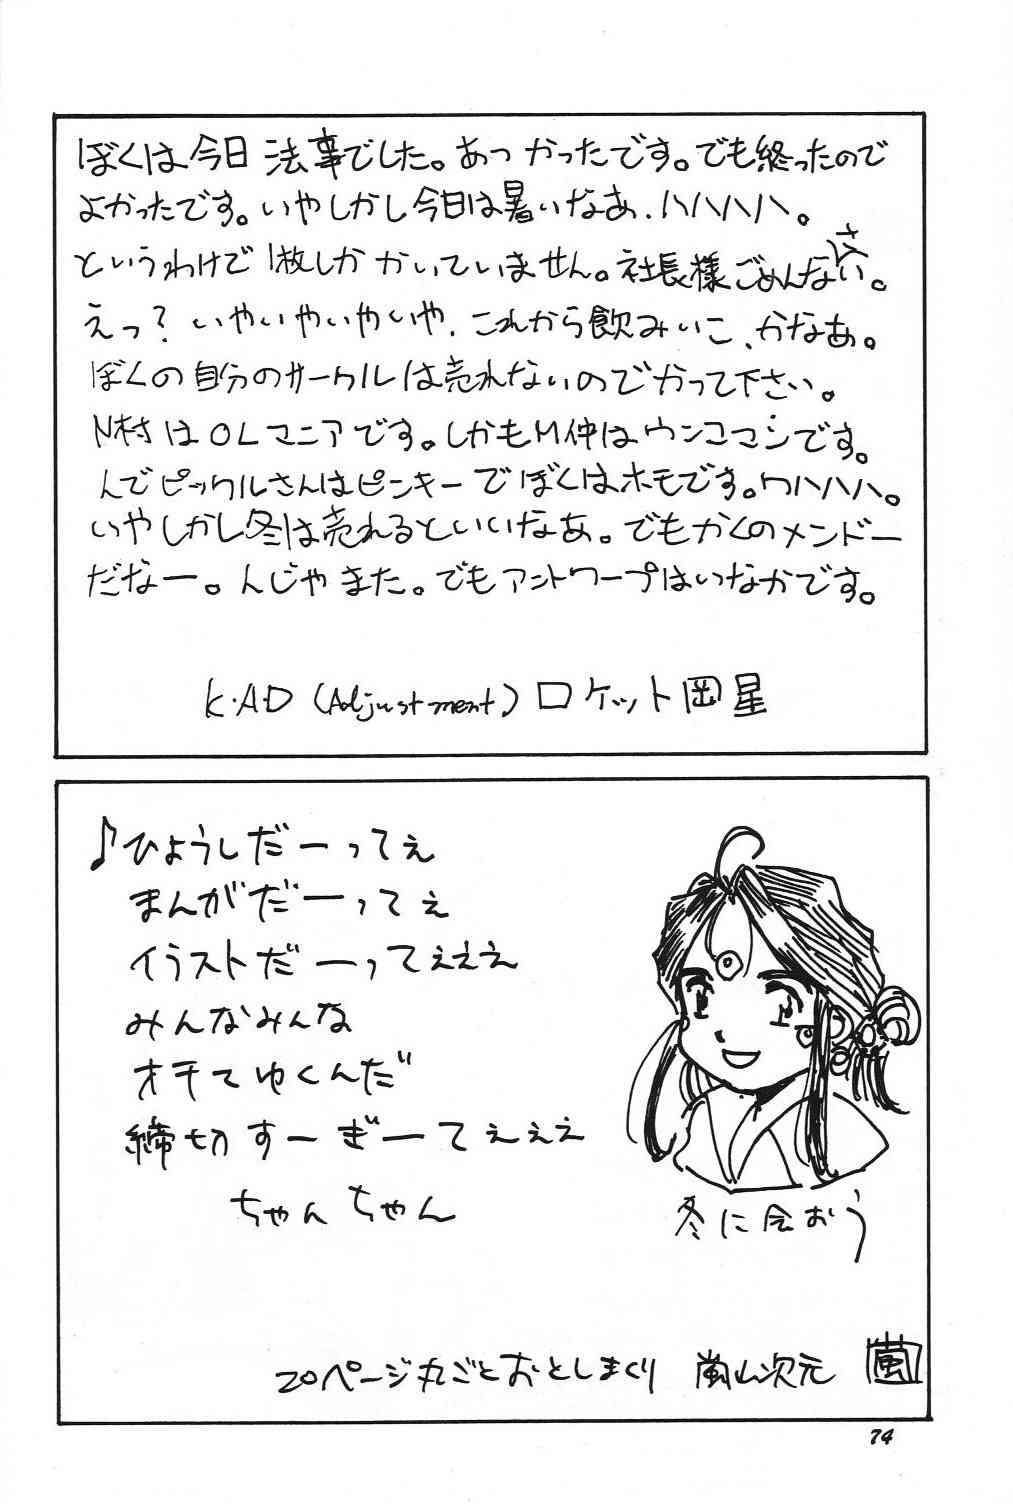 ぼくは今日法事でした。あつかったです。でも終ったので
よかったです。いやしかし今日は暑いなあ.ハハハハ。
というわけで1枚しかかいていません。社長様ごめんなさい。
えっ?いやいやいやいや.これから飲みいこ、かなあ。
ぼくの自分のサークルは売れないのでかって下さい。
N村はOLマニアです。しかもM仲はウンコマンです。
んでピックルさんはピンキーでぼくはホモです。ワハハハ。
いやしかし冬は売れるといいなあ。でもかくのメンドー
だなー。んじゃまた。でもアントワープはいなかです。
K・A・D (Adjustment) ロケット岡星
♪ひょうしだーってぇ
まんがだーってぇ
イラストだーってぇぇぇ
みんなみんな
オチてゆくんだ
締切すーぎーてぇぇぇ
ちゃんちゃん
冬に会おう
20ページ丸ごとおとしまくり 嵐山次元 嵐
74